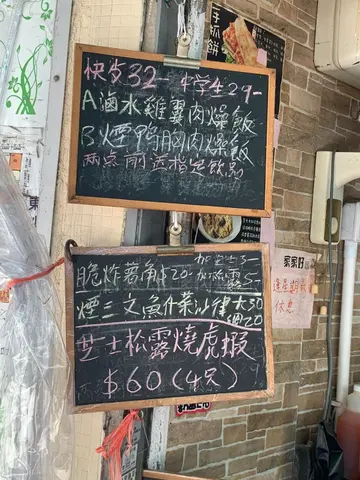 手抓餅
快歺32- 半学生29-
A滷水雞翼肉燥飯
B.煙鴨胸肉燥飯
兩点前送指定飲品
脆炸薯角$20-
加芝士3-
加松露5-
煙三文魚什菜沙律大30
細20
芝士松露燒虎蝦
$60(4只)
家家好
逢星期
休息